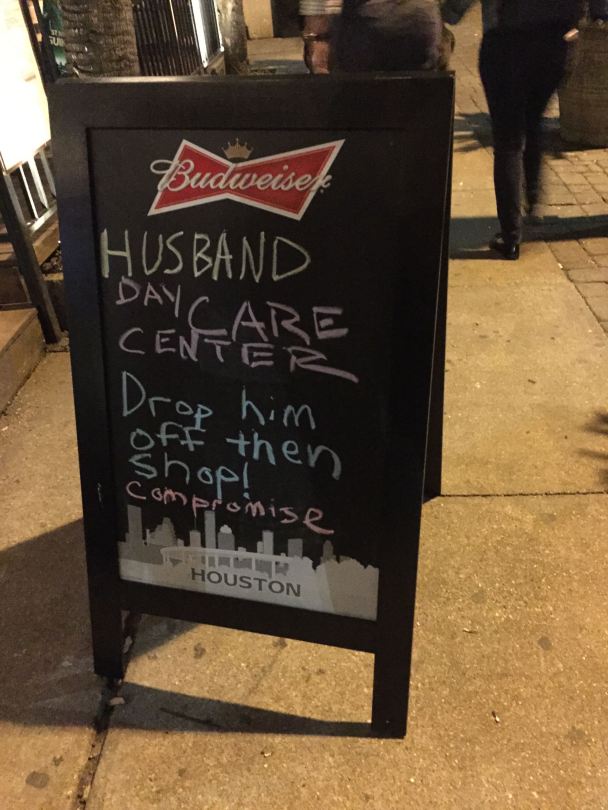 Budweiser
HUSBAND
DAY CARE
CENTER
Drop him
off then
shop!
compromise
HOUSTON